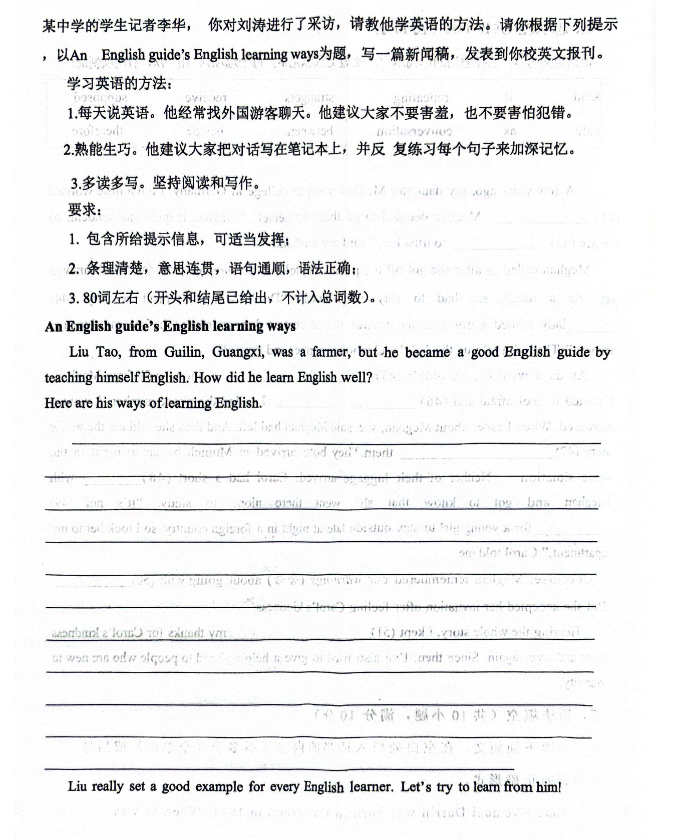 某中学的学生记者李华， 你对刘涛进行了采访，请教他学英语的方法。请你根据下列提示
，以An English guide's English learning ways为题，写一篇新闻稿，发表到你校英文报刊。
学习英语的方法：
1.每天说英语。他经常找外国游客聊天。他建议大家不要害羞，也不要害怕犯错。
2.熟能生巧。他建议大家把对话写在笔记本上，并反 复练习每个句子来加深记忆。
3.多读多写。坚持阅读和写作。
要求：
1. 包含所给提示信息，可适当发挥；
2. 条理清楚，意思连贯，语句通顺，语法正确；
3. 80词左右（开头和结尾已给出，不计入总词数）。
An English guide's English learning ways
Liu Tao, from Guilin, Guangxi, was a farmer, but he became a good English guide by
teaching himself English. How did he learn English well?
Here are his ways of learning English.
Liu really set a good example for every English learner. Let's try to learn from him!